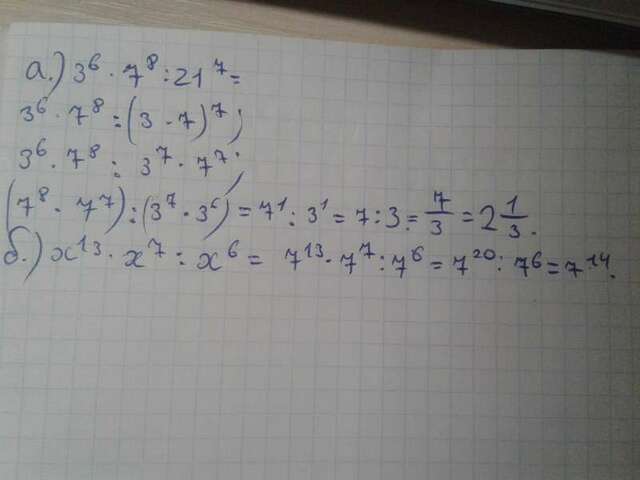 а.) 3⁶ · 7⁸ : 21⁷ =
3⁶ · 7⁸ : (3 · 7)⁷;
3⁶ · 7⁸ : 3⁷ · 7⁷;
(7⁸ · 7⁷) : (3⁷ · 3⁶) = 7¹ : 3¹ = 7 : 3 = 7/3 = 2 1/3.
б.) x¹³ · x⁷ : x⁶ = 7¹³ · 7⁷ : 7⁶ = 7²⁰ : 7⁶ = 7¹⁴.